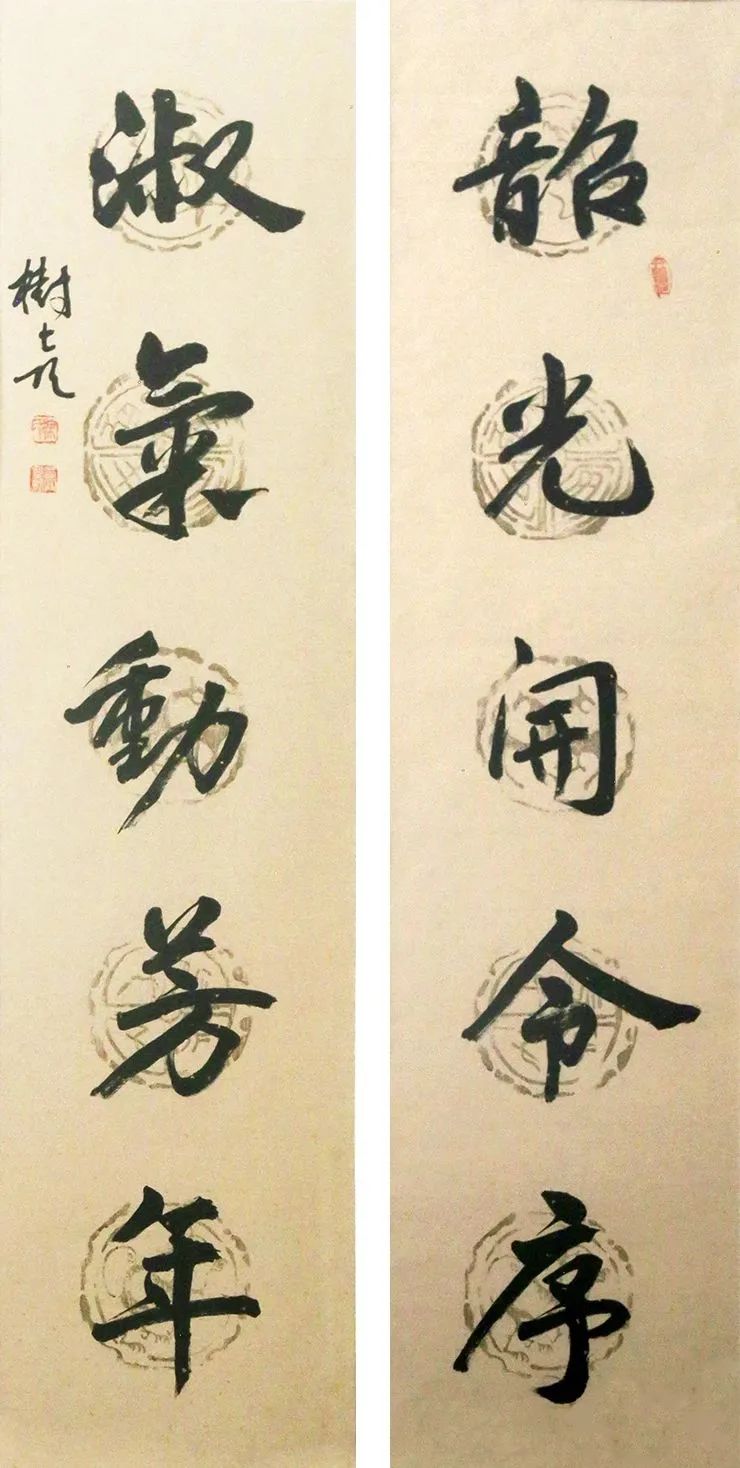 韶光開令序
淑氣動芳年
樹